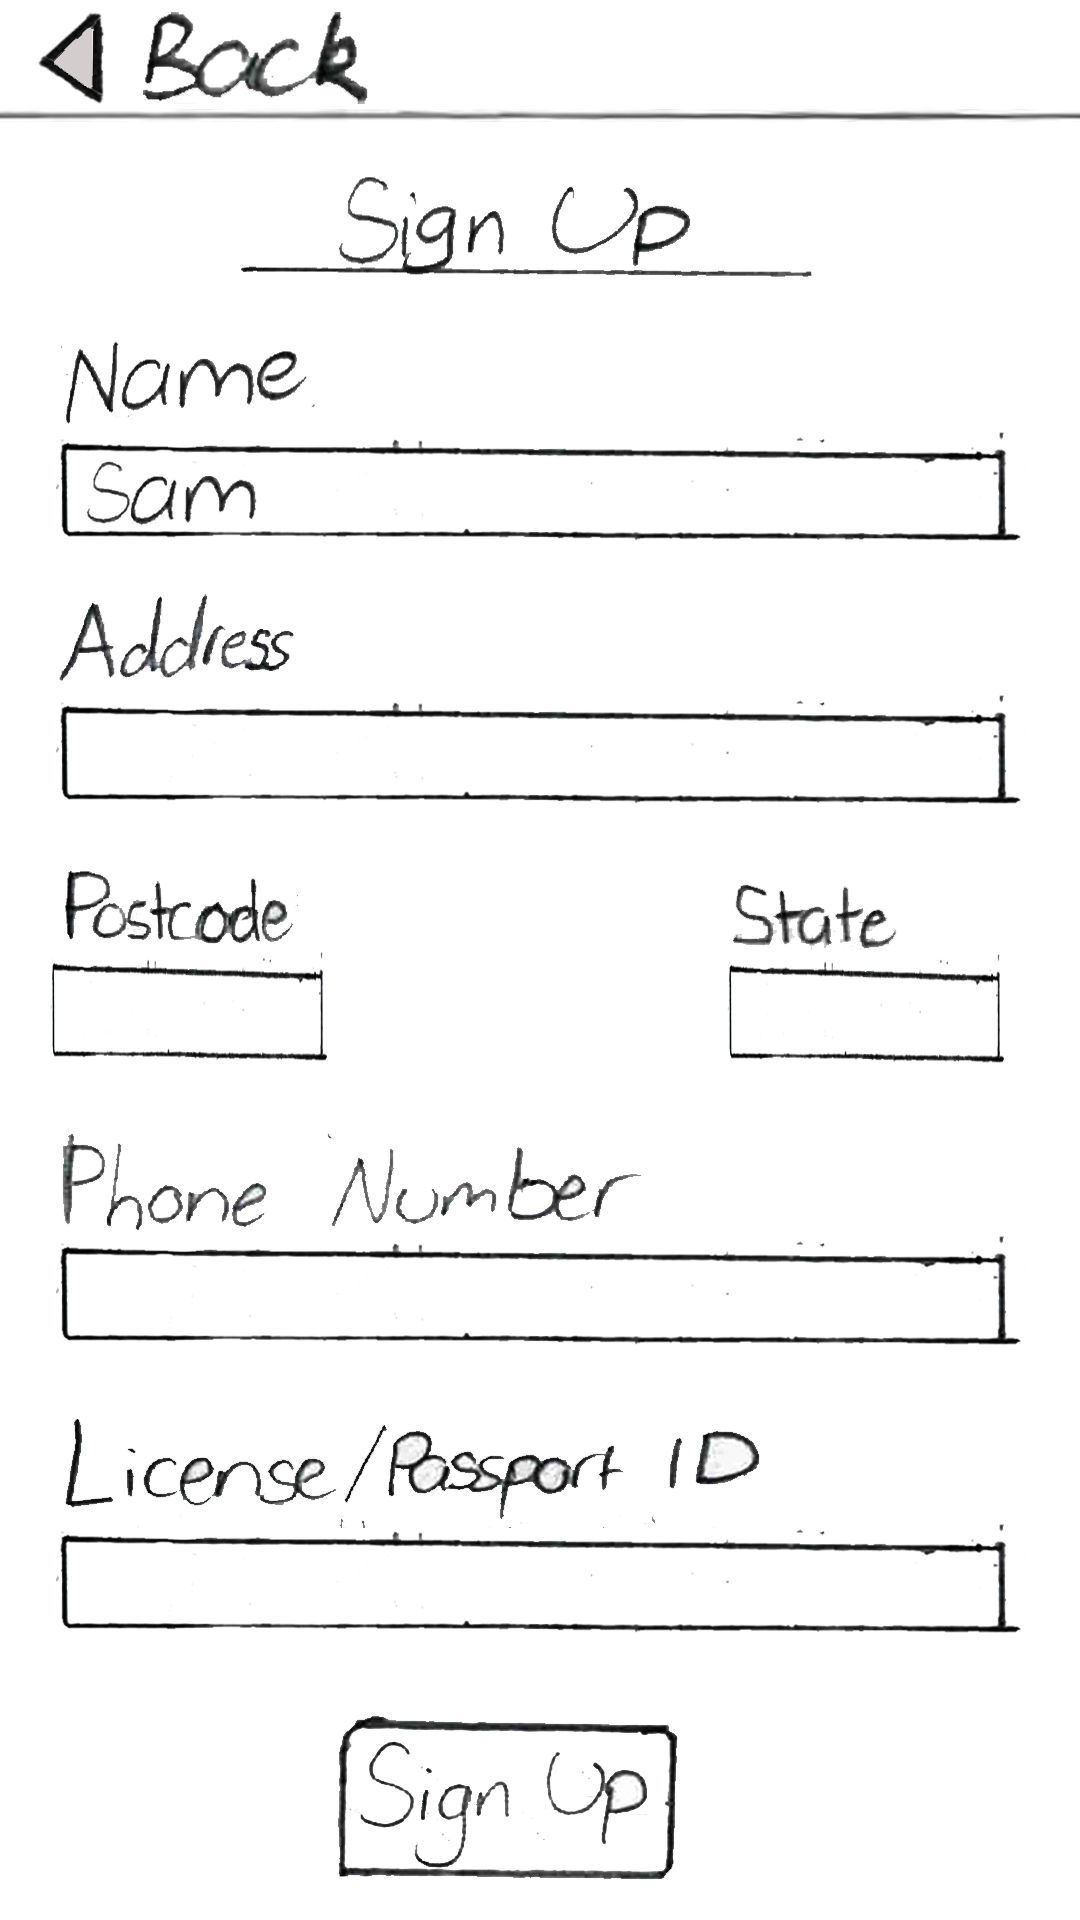 Back
Sign Up
Name
Sam
Address
Postcode State
Phone Number
License/Passport ID
Sign Up